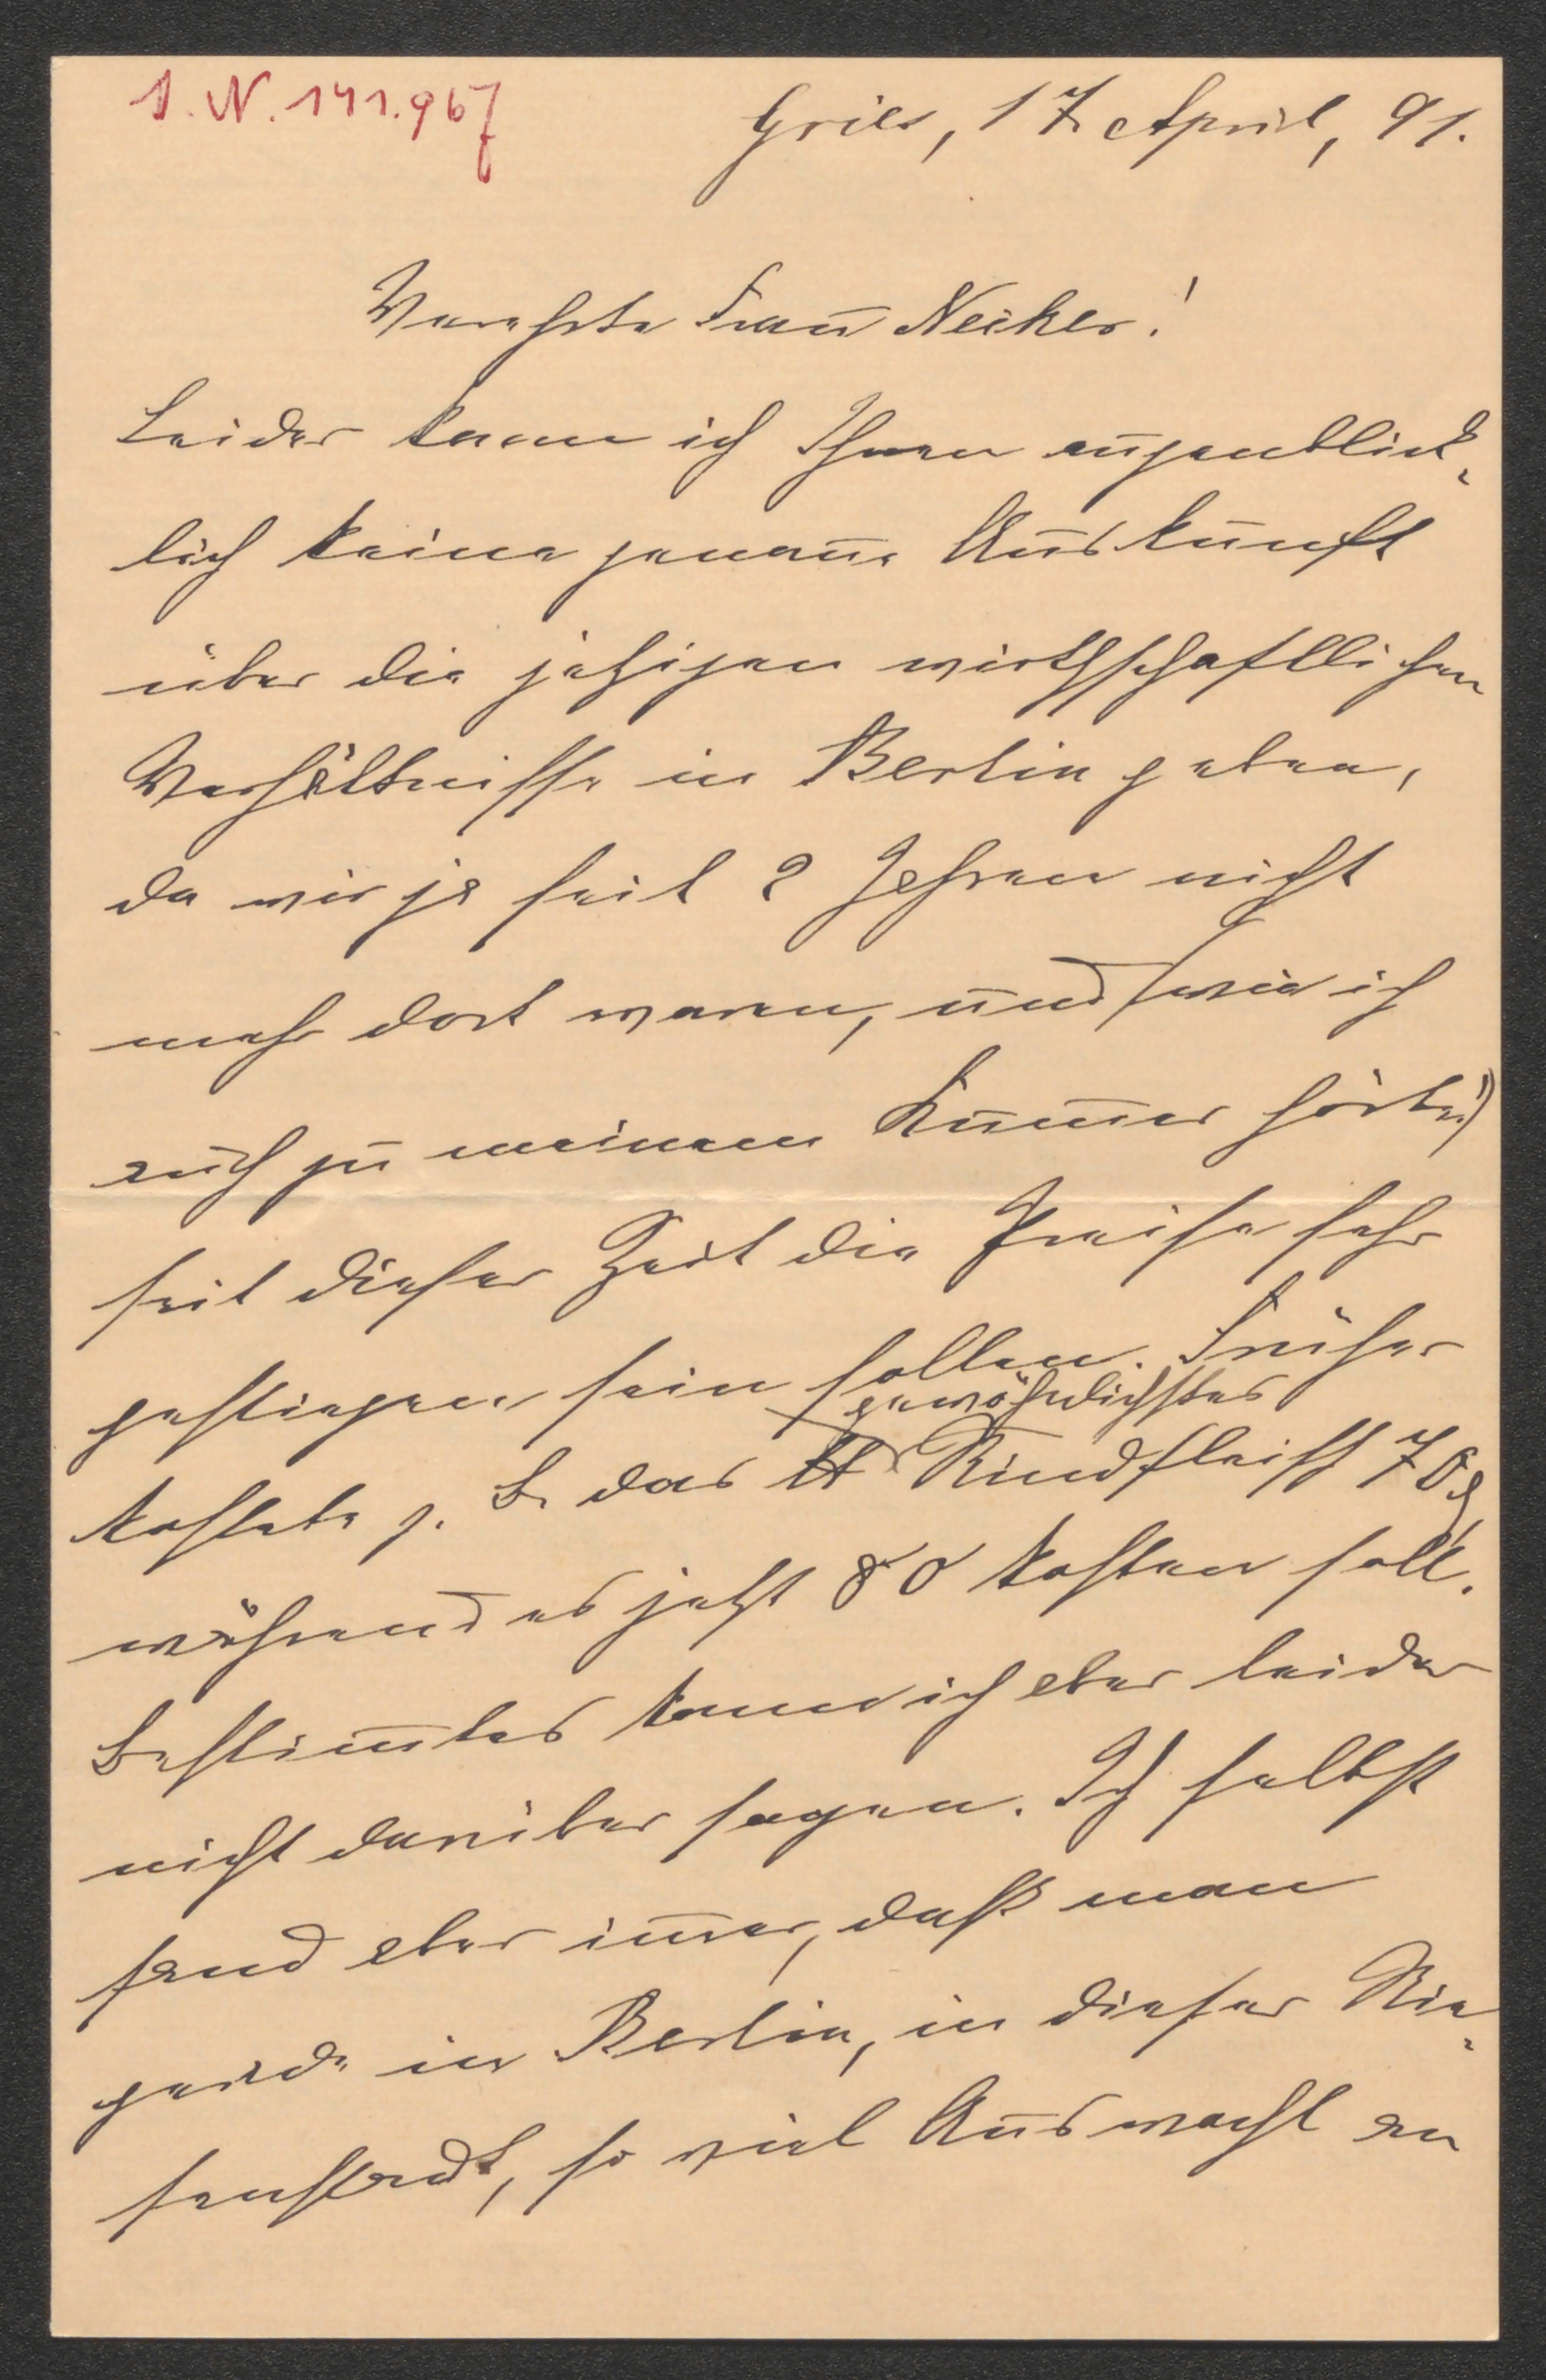 I. N. 141.967
Gries, 17 April, 91.
Verehrte Frau Necker!
Leider kann ich Ihnen augenblick-
lich keine genaue Auskunft
über die jetzigen wirthschaftlichen
Verhältnisse in Berlin geben,
da wir ja seit 2 Jahren nicht
mehr dort waren, und (wie ich
auch zu meinem Kum̅er hörte!)
seit dieser Zeit die Preise sehr
gestiegen sein sollen. Früher
gewöhnlichstes
kostete z. B. das ℔ Rindfleisch 70 ₰,
während es jetzt 80 kosten soll.
Bestim̅tes kann ich aber leider
nicht darüber sagen. Ich selbst
fand aber im̅er, daß man
gerade in Berlin, in dieser Rie-
senstadt, so viel Auswahl an